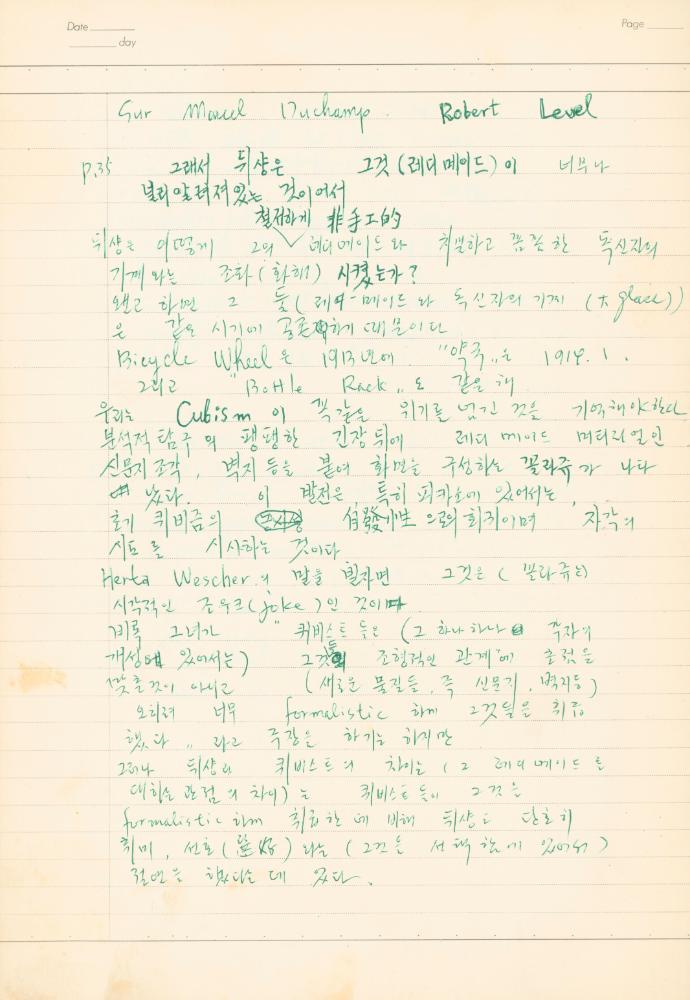 Date
Page
day
Sur Marcel Duchamp. Robert Level
P.35 그래서 뒤샹은 그것 (레디메이드)이 너무나
널리알려져있는 것이어서
철저하게 非手工的
뒤샹은 어떻게 그의 레디메이드와 치밀하고 꼼꼼한 독신자의
기계와는 조화(화해) 시켰는가?
왜냐 하면 그 둘(레디-메이드와 독신자의 기계 (大glass))
은 같은 시기에 공존하기 때문이다
Bicycle Wheel은 1913년에 "약국"은 1914. 1.
그리고 "Bottle Rack"도 같은 해
우리는 Cubism이 꼭같은 위기를 넘긴 것을 기억해야한다
분석적 탐구의 팽팽한 긴장 뒤에 레디메이드 머티리얼인
신문지조각, 벽지 등을 붙여 화면을 구성하는 꼴라쥬가 나타
났다. 이 발전은, 특히 피카소에 있어서는,
초기 퀴비즘의 自發性으로의 회귀이며 자각의
시도를 시사하는 것이다
Herta Wescher의 말을 빌자면 그것은 (꼴라쥬는)
시각적인 조우크(joke)인 것이다
비록 그녀가 "퀴비스트들은 (그 하나하나 작자의
개성에 있어서는) 그것들 조형적인 관계에 촛점을
맞춘것이 아니고 (새로운 물질들, 즉 신문지, 벽지등)
오히려 너무 formalistic 하게 그것들을 취급
했다" 라고 주장을 하기는 하지만
그러나 뒤샹과 퀴비스트의 차이는 (그 레디메이드를
대하는 관점의 차이)는 퀴비스트들이 그것을
formalistic하게 취급한데 비해 뒤샹은 단호히
취미, 선호(選好)와는 (그것을 선택함에 있어서)
절연을 했다는데 있다.